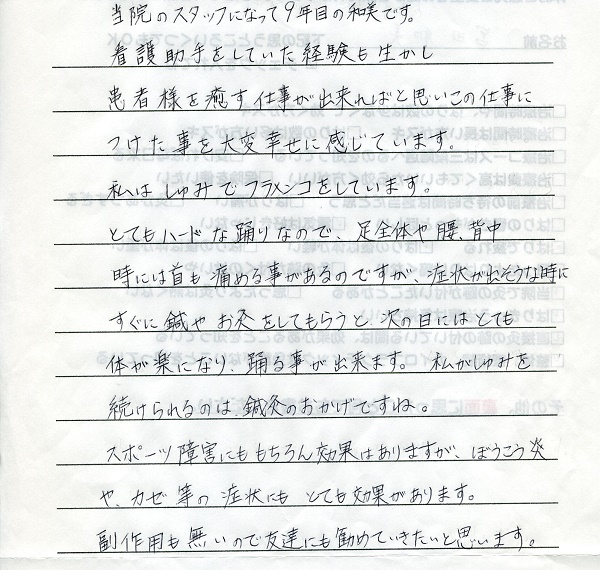 当院のスタッフになって9年目の和美です。
看護助手をしていた経験も生かし
患者様を癒す仕事が出来ればと思いこの仕事に
つけた事を大変幸せに感じています。
私はしゅみでフラメンコをしています。
とてもハードな踊りなので、足全体や腰、背中
時には首も痛める事があるのですが、症状が出そうな時に
すぐに鍼やお灸をしてもらうと、次の日にはとても
体が楽になり、踊る事が出来ます。私がしゅみを
続けられるのは、鍼灸のおかげですね。
スポーツ障害にももちろん効果はありますが、ぼうこう炎
や、カゼ等の症状にもとても効果があります。
副作用も無いので友達にも勧めていきたいと思います。